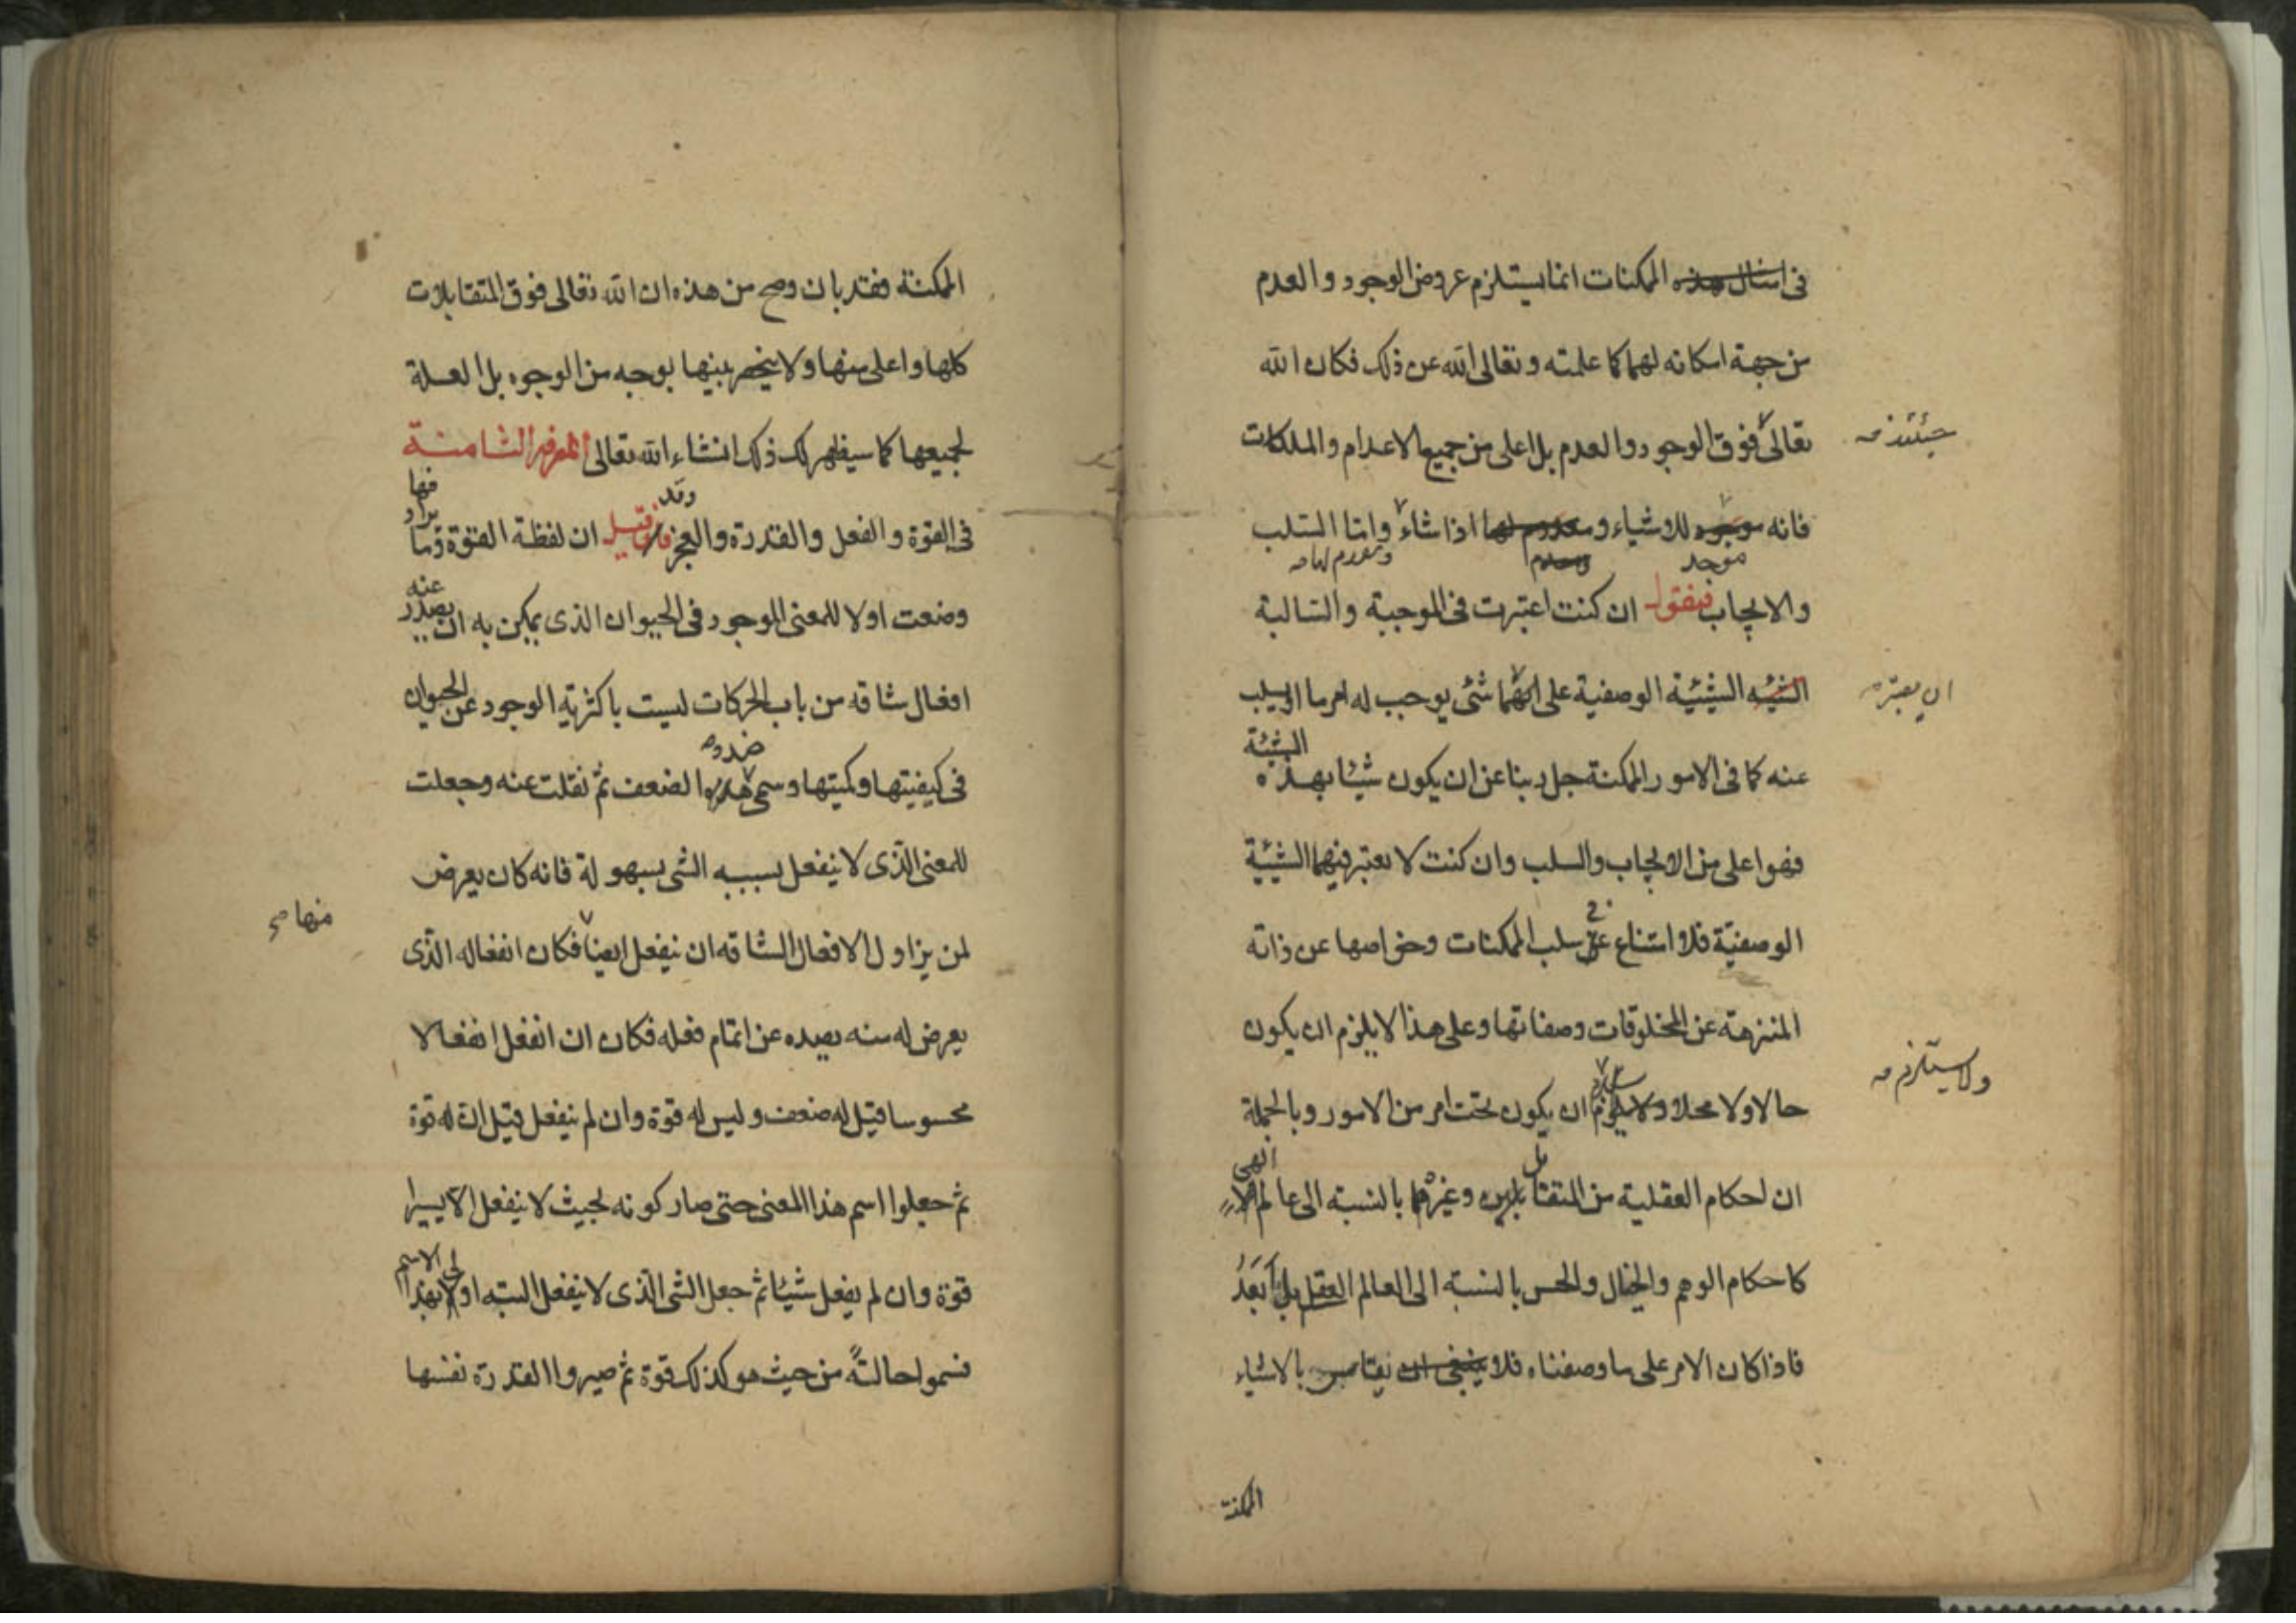 فى امثال هذه الممكنات انما يستلزم عروض الوجود والعدم
من جهة امكانه لهما كما علمته وتعالى الله عن ذلك فكان الله
تعالى فوق الوجود والعدم بل اعلى من جميع الاعدام والملكات
حينئذ صه
فانه موجود للاشياء ومعدوم لها اذا شاء واما السلب
موجد
ومعدم لها صه
والايجاب فنقول ان كنت اعتبرت فى الموجبة والسالبة
الشيئه الشيئية الوصفية على انهما شئ يوجب له امر ما او يسلب
ان يعتبر صه
الشيئية
عنه كما فى الامور الممكنة جل ربنا عن ان يكون شيئا بهذه
فهو اعلى من الايجاب والسلب وان كنت لا تعتبر فيهما الشيئية
الوصفيّة فلا امتناع عن سلب الممكنات وخواصها عن ذاته
فى
المنزهة عن المخلوقات وصفاتها وعلى هذا لا يلزم ان يكون
حالا ولا محلا ولا يلزم ان يكون تحت امر من الامور وبالجملة
ولا يستلزم صه
ان احكام العقلية من المتقابلين وغيرهما بالنسبة الى عالم
بل
الهى
كاحكام الوهم والخيال والحس بالنسبة الى العالم العقل بل ابعد
فاذا كان الامر على ما وصفناه فلا ينبغى ان يقاس بالاشياء
الممكنة
الممكنة فقد بان وصح من هذه ان الله تعالى فوق المتقابلات
كلها واعلى منها ولا ينحصر بينها بوجه من الوجوه بل العلة
لجميعها كما سيظهر لك ذلك انشاء الله تعالى المعرفة الثامنة
فى القوة والفعل والقدرة والعجز فاقول قيل ان لفظة القوة وما
وقد
يراد فها
وضعت اولا للمعنى الموجود فى الحيوان الذى يمكن به ان يصدر
عنه
افعال شاقه من باب الحركات ليست باكثرية الوجود عن الحيوان
فى كيفيتها وكميتها وسمى ضده الضعف ثم نقلت عنه وجعلت
للمعنى الذى لا ينفعل بسببه الشى بسهولة فانه كان يعرض
لمن يزاول الافعال الشاقه ان ينفعل ايضا فكان انفعاله الذى
منها صح
يعرض له منه يصده عن اتمام فعله فكان ان انفعل انفعالا
محسوسا قيل له ضعف وليس له قوة وان لم ينفعل قيل ان له قوة
ثم جعلوا اسم هذا المعنى حتى صار كونه بحيث لا ينفعل الا يسيرا
قوة وان لم يفعل شيئا ثم جعل الشى الذى لا ينفعل البتّه اولى بهذا
الاسم
فسموا حالته من حيث هو كذلك قوة ثم صيروا القدرة نفسها